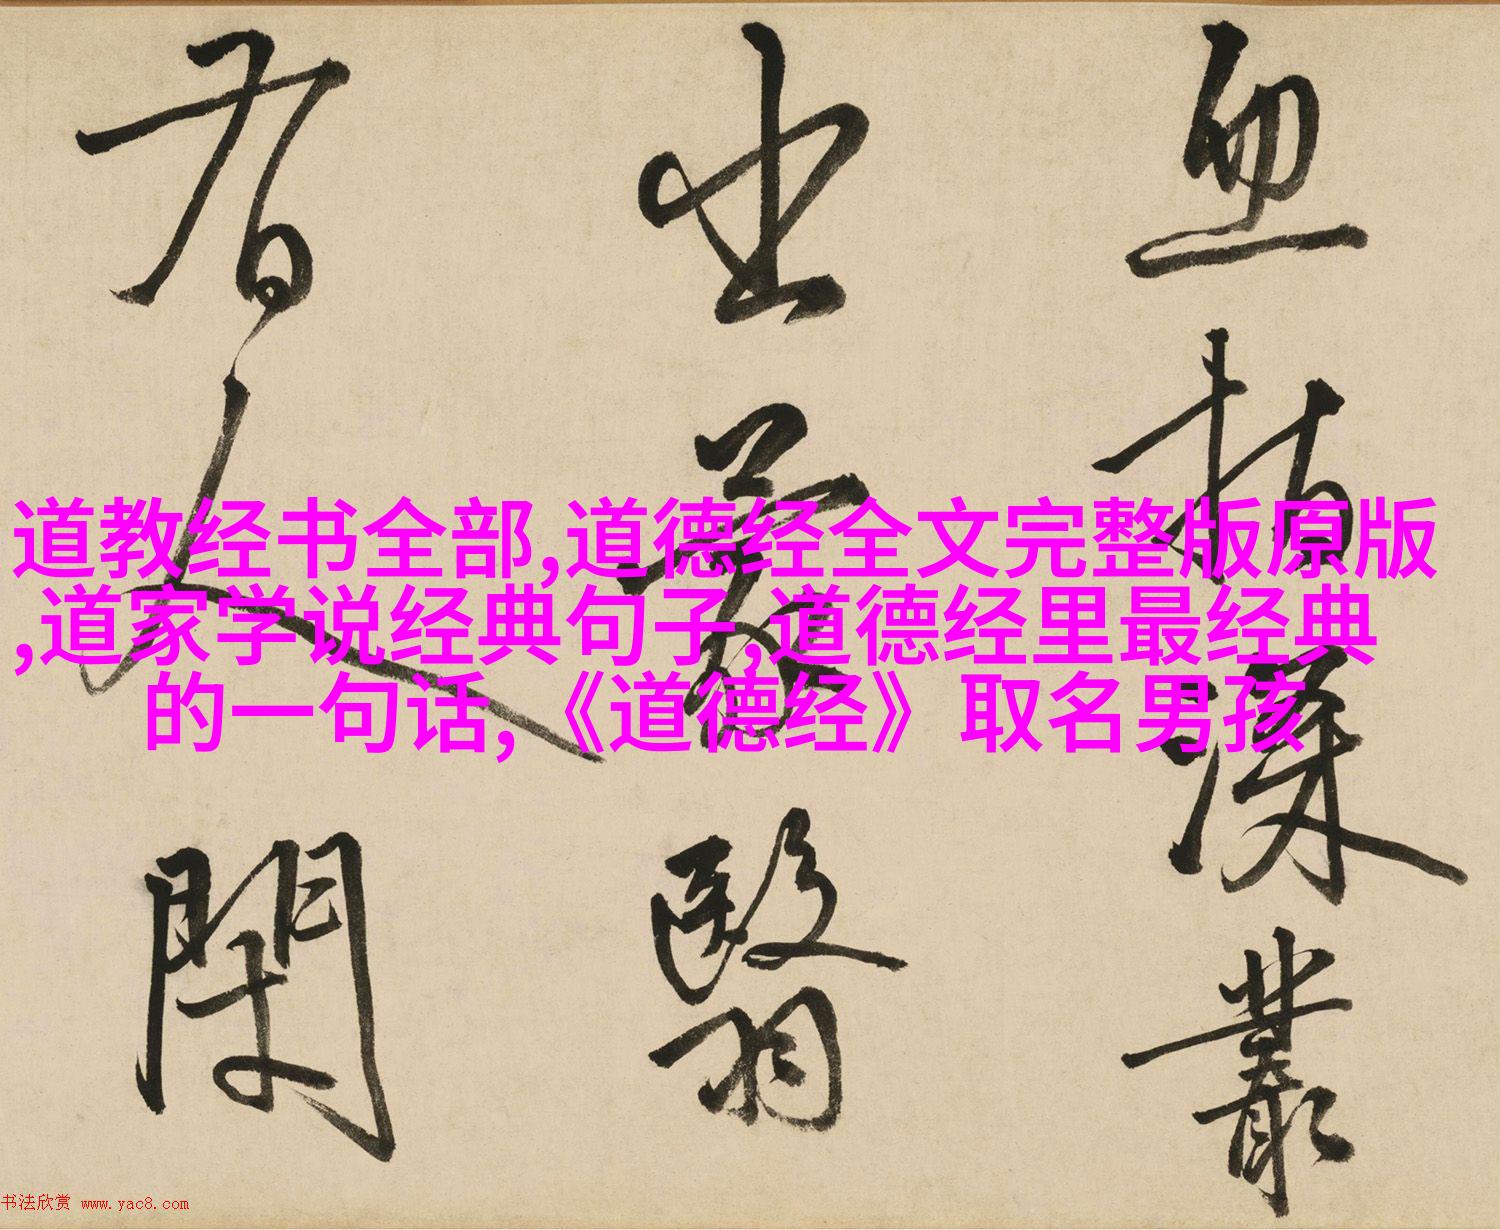 道教经书全部,道德经全文完整版原版
,道家学说经典句子,道德经里最经典
的一句话,《道德经》取名男孩
血指深叢
出蒙翳
人閑
书法欣赏 www.yac8.com